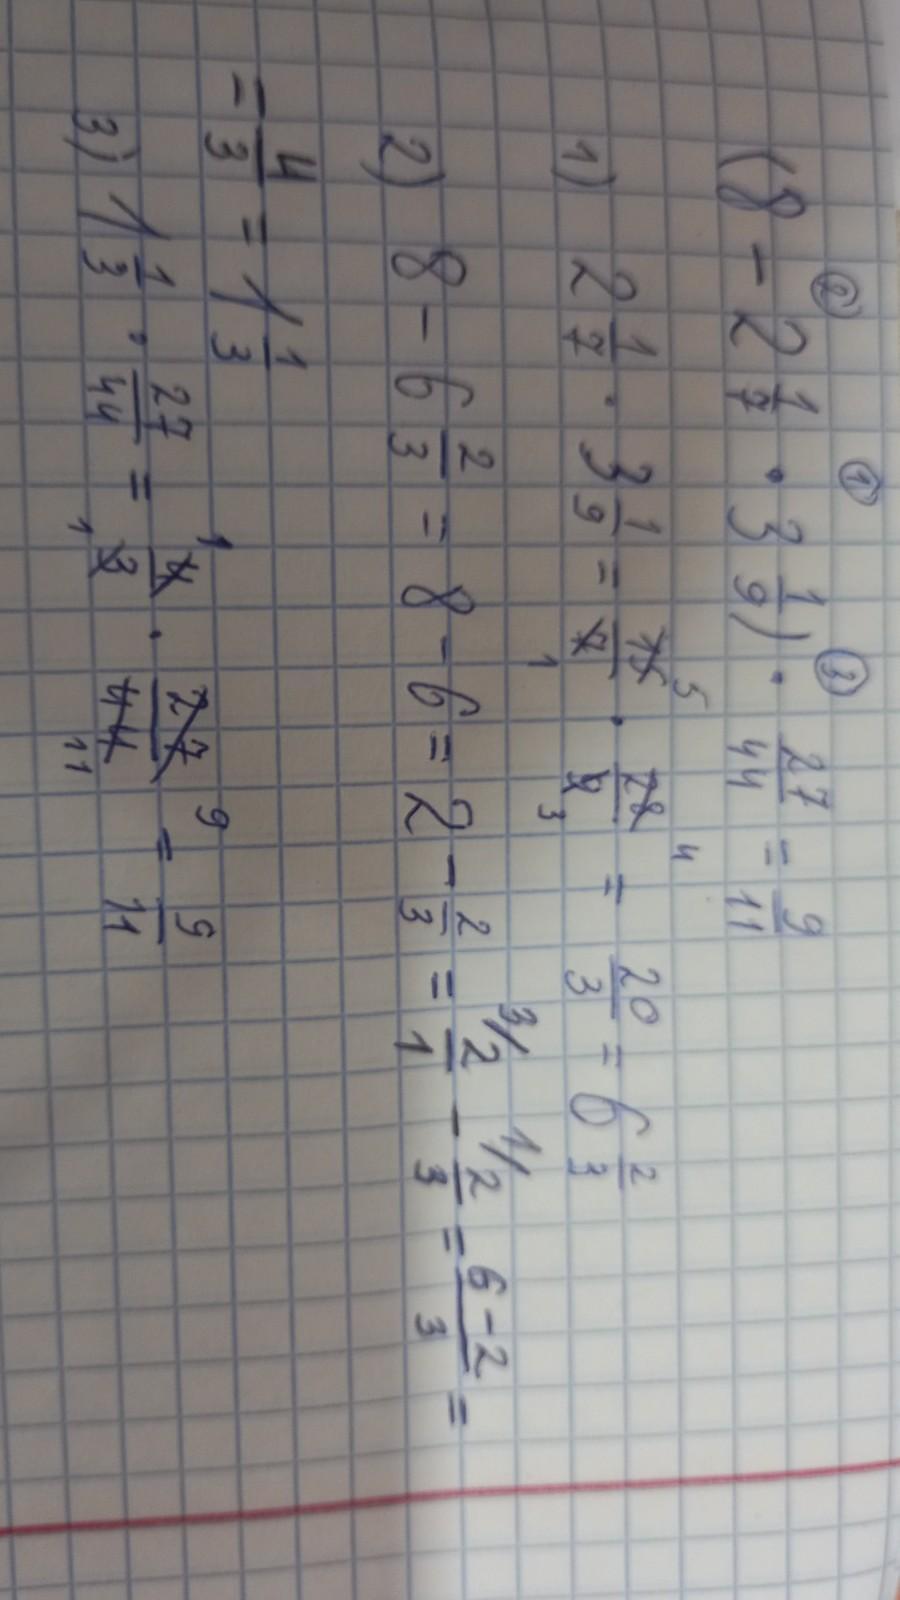 ② ① ③
(8 - 2 1/7 · 3 1/9) · 27/44 = 9/11
1) 2 1/7 · 3 1/9 = 15/7 · 28/9 = 20/3 = 6 2/3
5 4
1 3
2) 8 - 6 2/3 = 8 - 6 = 2 - 2/3 = 2/1 - 2/3 = (6-2)/3 =
3/ 1/
= 4/3 = 1 1/3
3) 1 1/3 · 27/44 = 4/3 · 27/44 = 9/11
1 9
1 11